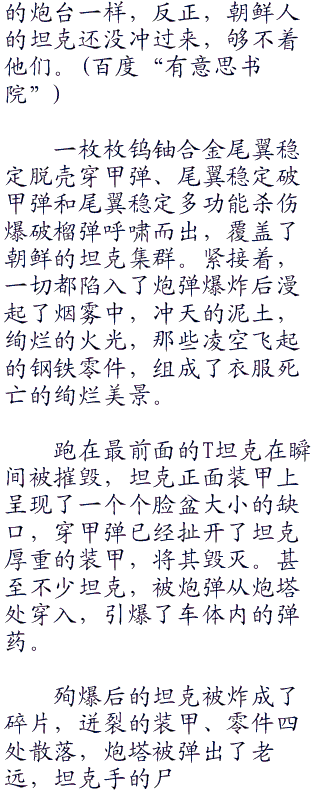 的炮台一样，反正，朝鲜人
的坦克还没冲过来，够不着
他们。（百度“有意思书
院”）
一枚枚钨铀合金尾翼稳
定脱壳穿甲弹、尾翼稳定破
甲弹和尾翼稳定多功能杀伤
爆破榴弹呼啸而出，覆盖了
朝鲜的坦克集群。紧接着，
一切都陷入了炮弹爆炸后漫
起了烟雾中，冲天的泥土，
绚烂的火光，那些凌空飞起
的钢铁零件，组成了衣服死
亡的绚烂美景。
跑在最前面的T坦克在瞬
间被摧毁，坦克正面装甲上
呈现了一个个脸盆大小的缺
口，穿甲弹已经扯开了坦克
厚重的装甲，将其毁灭。甚
至不少坦克，被炮弹从炮塔
处穿入，引爆了车体内的弹
药。
殉爆后的坦克被炸成了
碎片，迸裂的装甲、零件四
处散落，炮塔被弹出了老
远，坦克手的尸